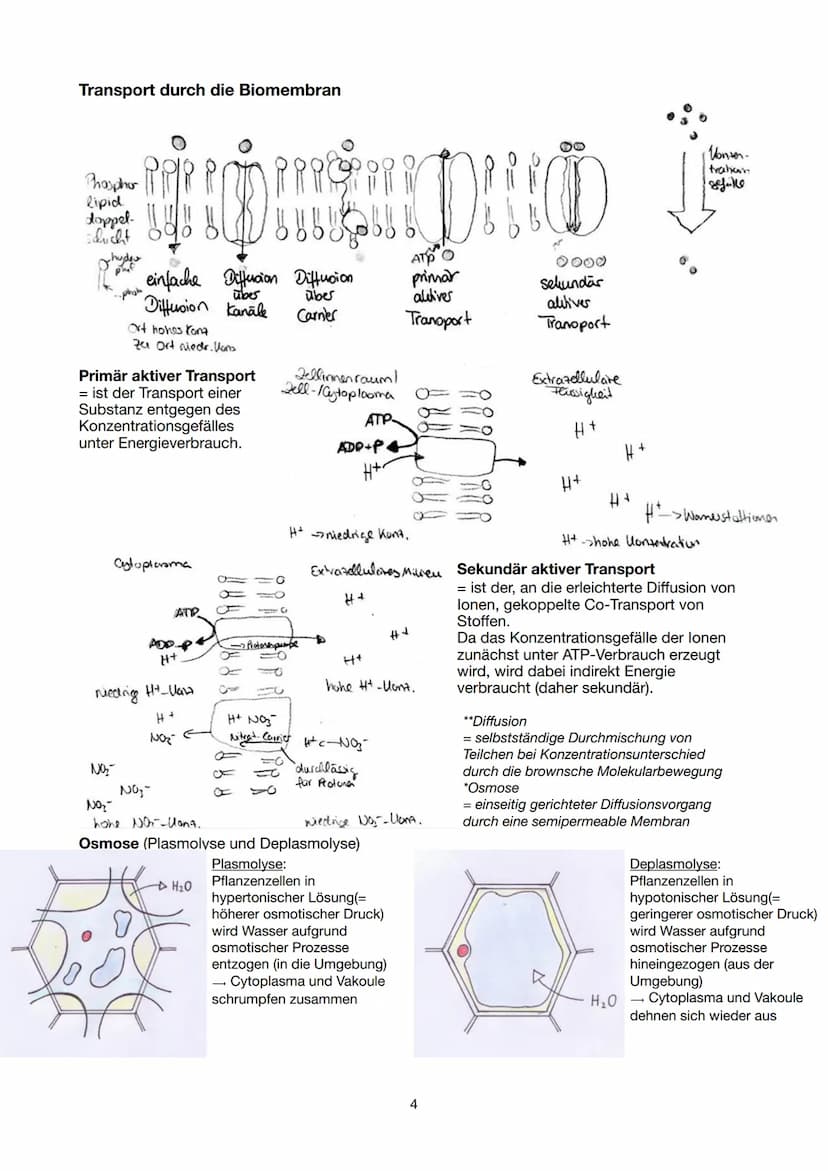 Transport durch die Biomembran
Konzen-
trations-
gefälle
Phospho
lipid
doppel-
schicht
einfache
Diffusion
Ort hohes Konz
zu Ort niedr. Konz
Diffusion
über
Kanäle
Diffusion
über
Carrier
ATP
primär
aktiver
Transport
sekundär
aktiver
Transport
Primär aktiver Transport
= ist der Transport einer
Substanz entgegen des
Konzentrationsgefälles
unter Energieverbrauch.
Zellinnenraum/
Zell-/Cytoplasma
Extrazelluläre
Flüssigkeit
ATP
ADP+P
H+
H+
H+
H+
H+
H+
H+ -> niedrige Konz.
H+ -> hohe Konzentration
Cytoplasma
Extrazelluläres Milieu
ATP
ADP-P
H+
-> Protonenpumpe
H+
H+
H+
niedrig H+-Konz
hohe H+-Konz.
H+
NO3-
H+ NO3-
Nitrat-Carrier
H+ NO3-
durchlässig
für Protonen
NO3-
NO3-
NO3-
hohe NO3--Konz.
niedrige NO3--Konz.
Sekundär aktiver Transport
= ist der, an die erleichterte Diffusion von
Ionen, gekoppelte Co-Transport von
Stoffen.
Da das Konzentrationsgefälle der Ionen
zunächst unter ATP-Verbrauch erzeugt
wird, wird dabei indirekt Energie
verbraucht (daher sekundär).
**Diffusion
= selbstständige Durchmischung von
Teilchen bei Konzentrationsunterschied
durch die brownsche Molekularbewegung
*Osmose
= einseitig gerichteter Diffusionsvorgang
durch eine semipermeable Membran
Osmose (Plasmolyse und Deplasmolyse)
H2O
Plasmolyse:
Pflanzenzellen in
hypertonischer Lösung(=
höherer osmotischer Druck)
wird Wasser aufgrund
osmotischer Prozesse
entzogen (in die Umgebung)
→ Cytoplasma und Vakoule
schrumpfen zusammen
H2O
Deplasmolyse:
Pflanzenzellen in
hypotonischer Lösung(=
geringerer osmotischer Druck)
wird Wasser aufgrund
osmotischer Prozesse
hineingezogen (aus der
Umgebung)
→ Cytoplasma und Vakoule
dehnen sich wieder aus
4